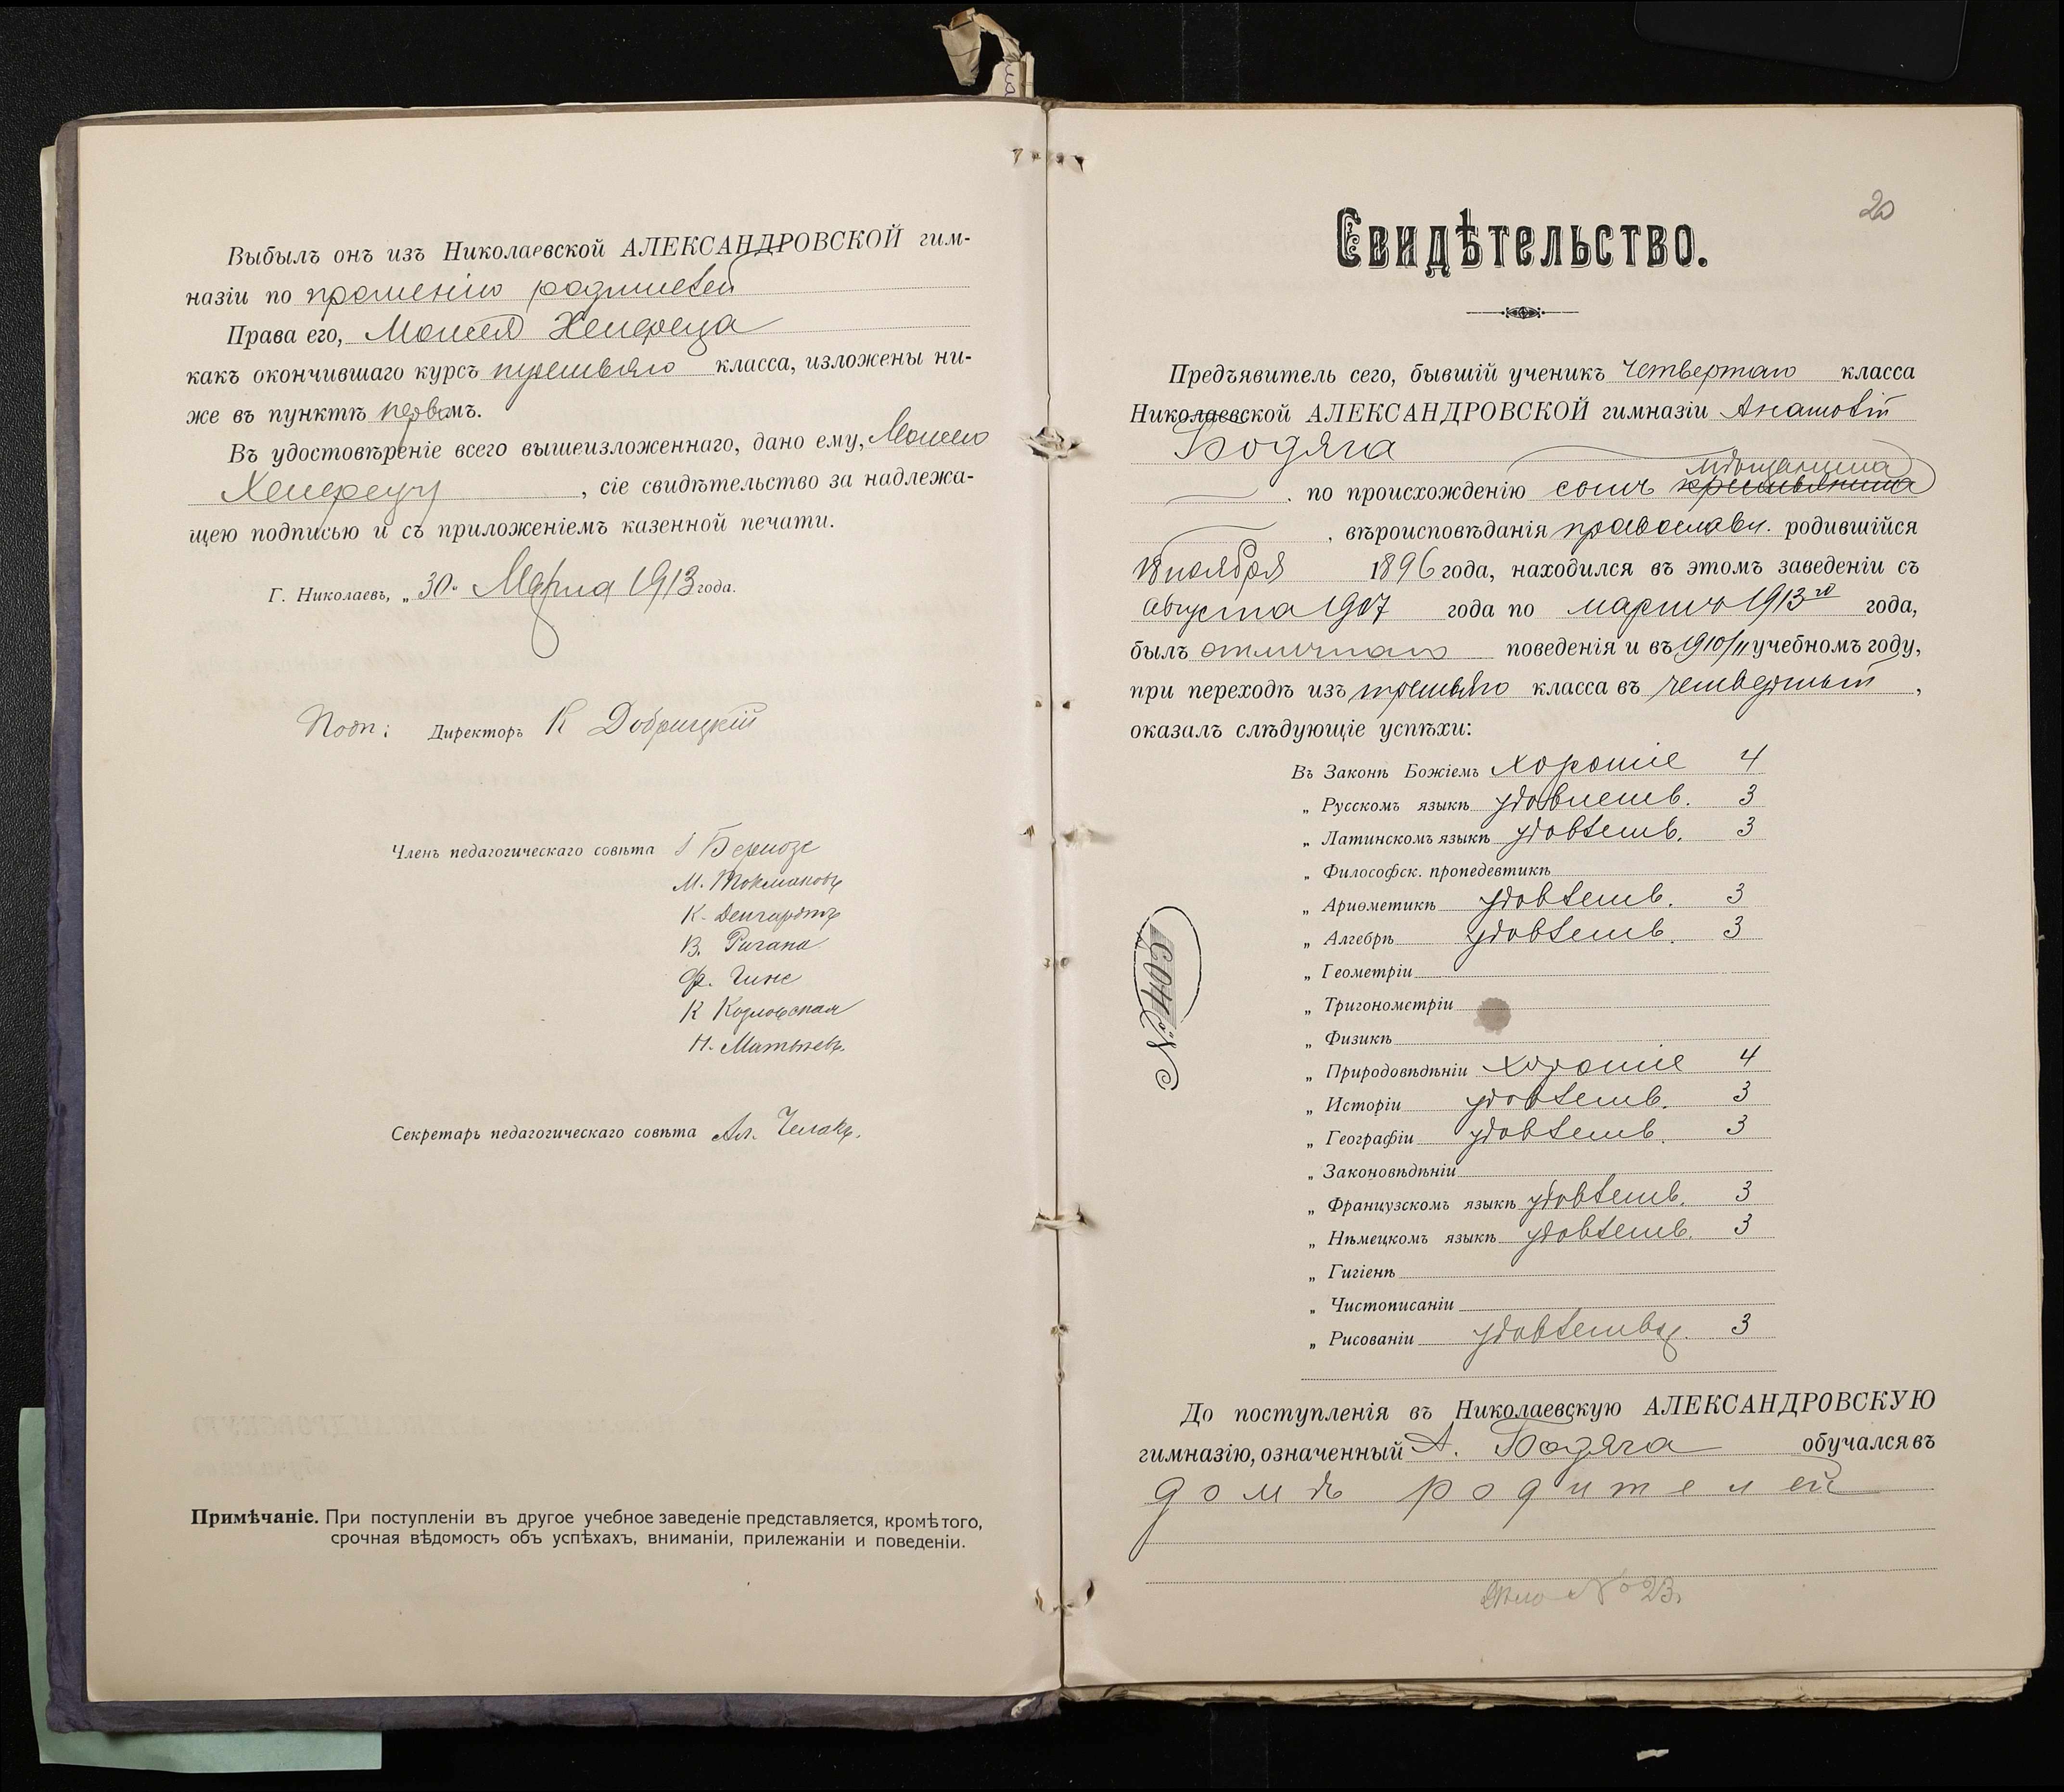 Выбылъ онъ изъ Николаевской АЛЕКСАНДРОВСКОЙ гим-
назіи по прошенію родителей
Права его, Моисея Хенереца
какъ окончившаго курсъ третьяго класса, изложены ни-
же въ пунктѣ первомъ.
Въ удостовѣреніе всего вышеизложеннаго, дано ему, Моисею
Хенерецу, сіе свидѣтельство за надлежа-
щею подписью и съ приложеніемъ казенной печати.
Г. Николаевъ, „30" Марта 1913 года.
Подп: Директоръ К Добрицкій
Членъ педагогическаго совѣта
М. Токмаковъ
К.
В.
Ф.
К Козловская
Н. Матвѣевъ.
Секретарь педагогическаго совѣта Ал.
Примѣчаніе. При поступленіи въ другое учебное заведеніе представляется, кромѣ того,
срочная вѣдомость объ успѣхахъ, вниманіи, прилежаніи и поведеніи.
20
Свидѣтельство.
Предъявитель сего, бывшій ученикъ четвертаго класса
Николаевской АЛЕКСАНДРОВСКОЙ гимназіи Анатолій
Бодяга
мѣщанина
, по происхожденію сынъ крестьянина
, вѣроисповѣданія православн. родившійся
18 ноября 1896 года, находился въ этомъ заведеніи съ
августа 1907 года по мартъ 1913го года,
былъ отличнаго поведенія и въ 1910/11 учебномъ году,
при переходѣ изъ третьяго класса въ четвертый,
оказалъ слѣдующіе успѣхи:
Въ Законѣ Божіемъ хорошіе 4
„ Русскомъ языкѣ удовлетв. 3
„ Латинскомъ языкѣ удовлетв. 3
„ Философск. пропедевтикѣ
„ Ариѳметикѣ удовлетв. 3
„ Алгебрѣ удовлетв. 3
„ Геометріи
„ Тригонометріи
„ Физикѣ
„ Природовѣдѣніи хорошіе 4
„ Исторіи удовлетв. 3
„ Географіи удовлетв. 3
„ Законовѣдѣніи
„ Французскомъ языкѣ удовлетв. 3
„ Нѣмецкомъ языкѣ удовлетв. 3
„ Гигіенѣ
„ Чистописаніи
„ Рисованіи 3
С № 403
До поступленія въ Николаевскую АЛЕКСАНДРОВСКУЮ
гимназію, означенный А. Бодяга обучался въ
домѣ родителей
Дѣло № 23.